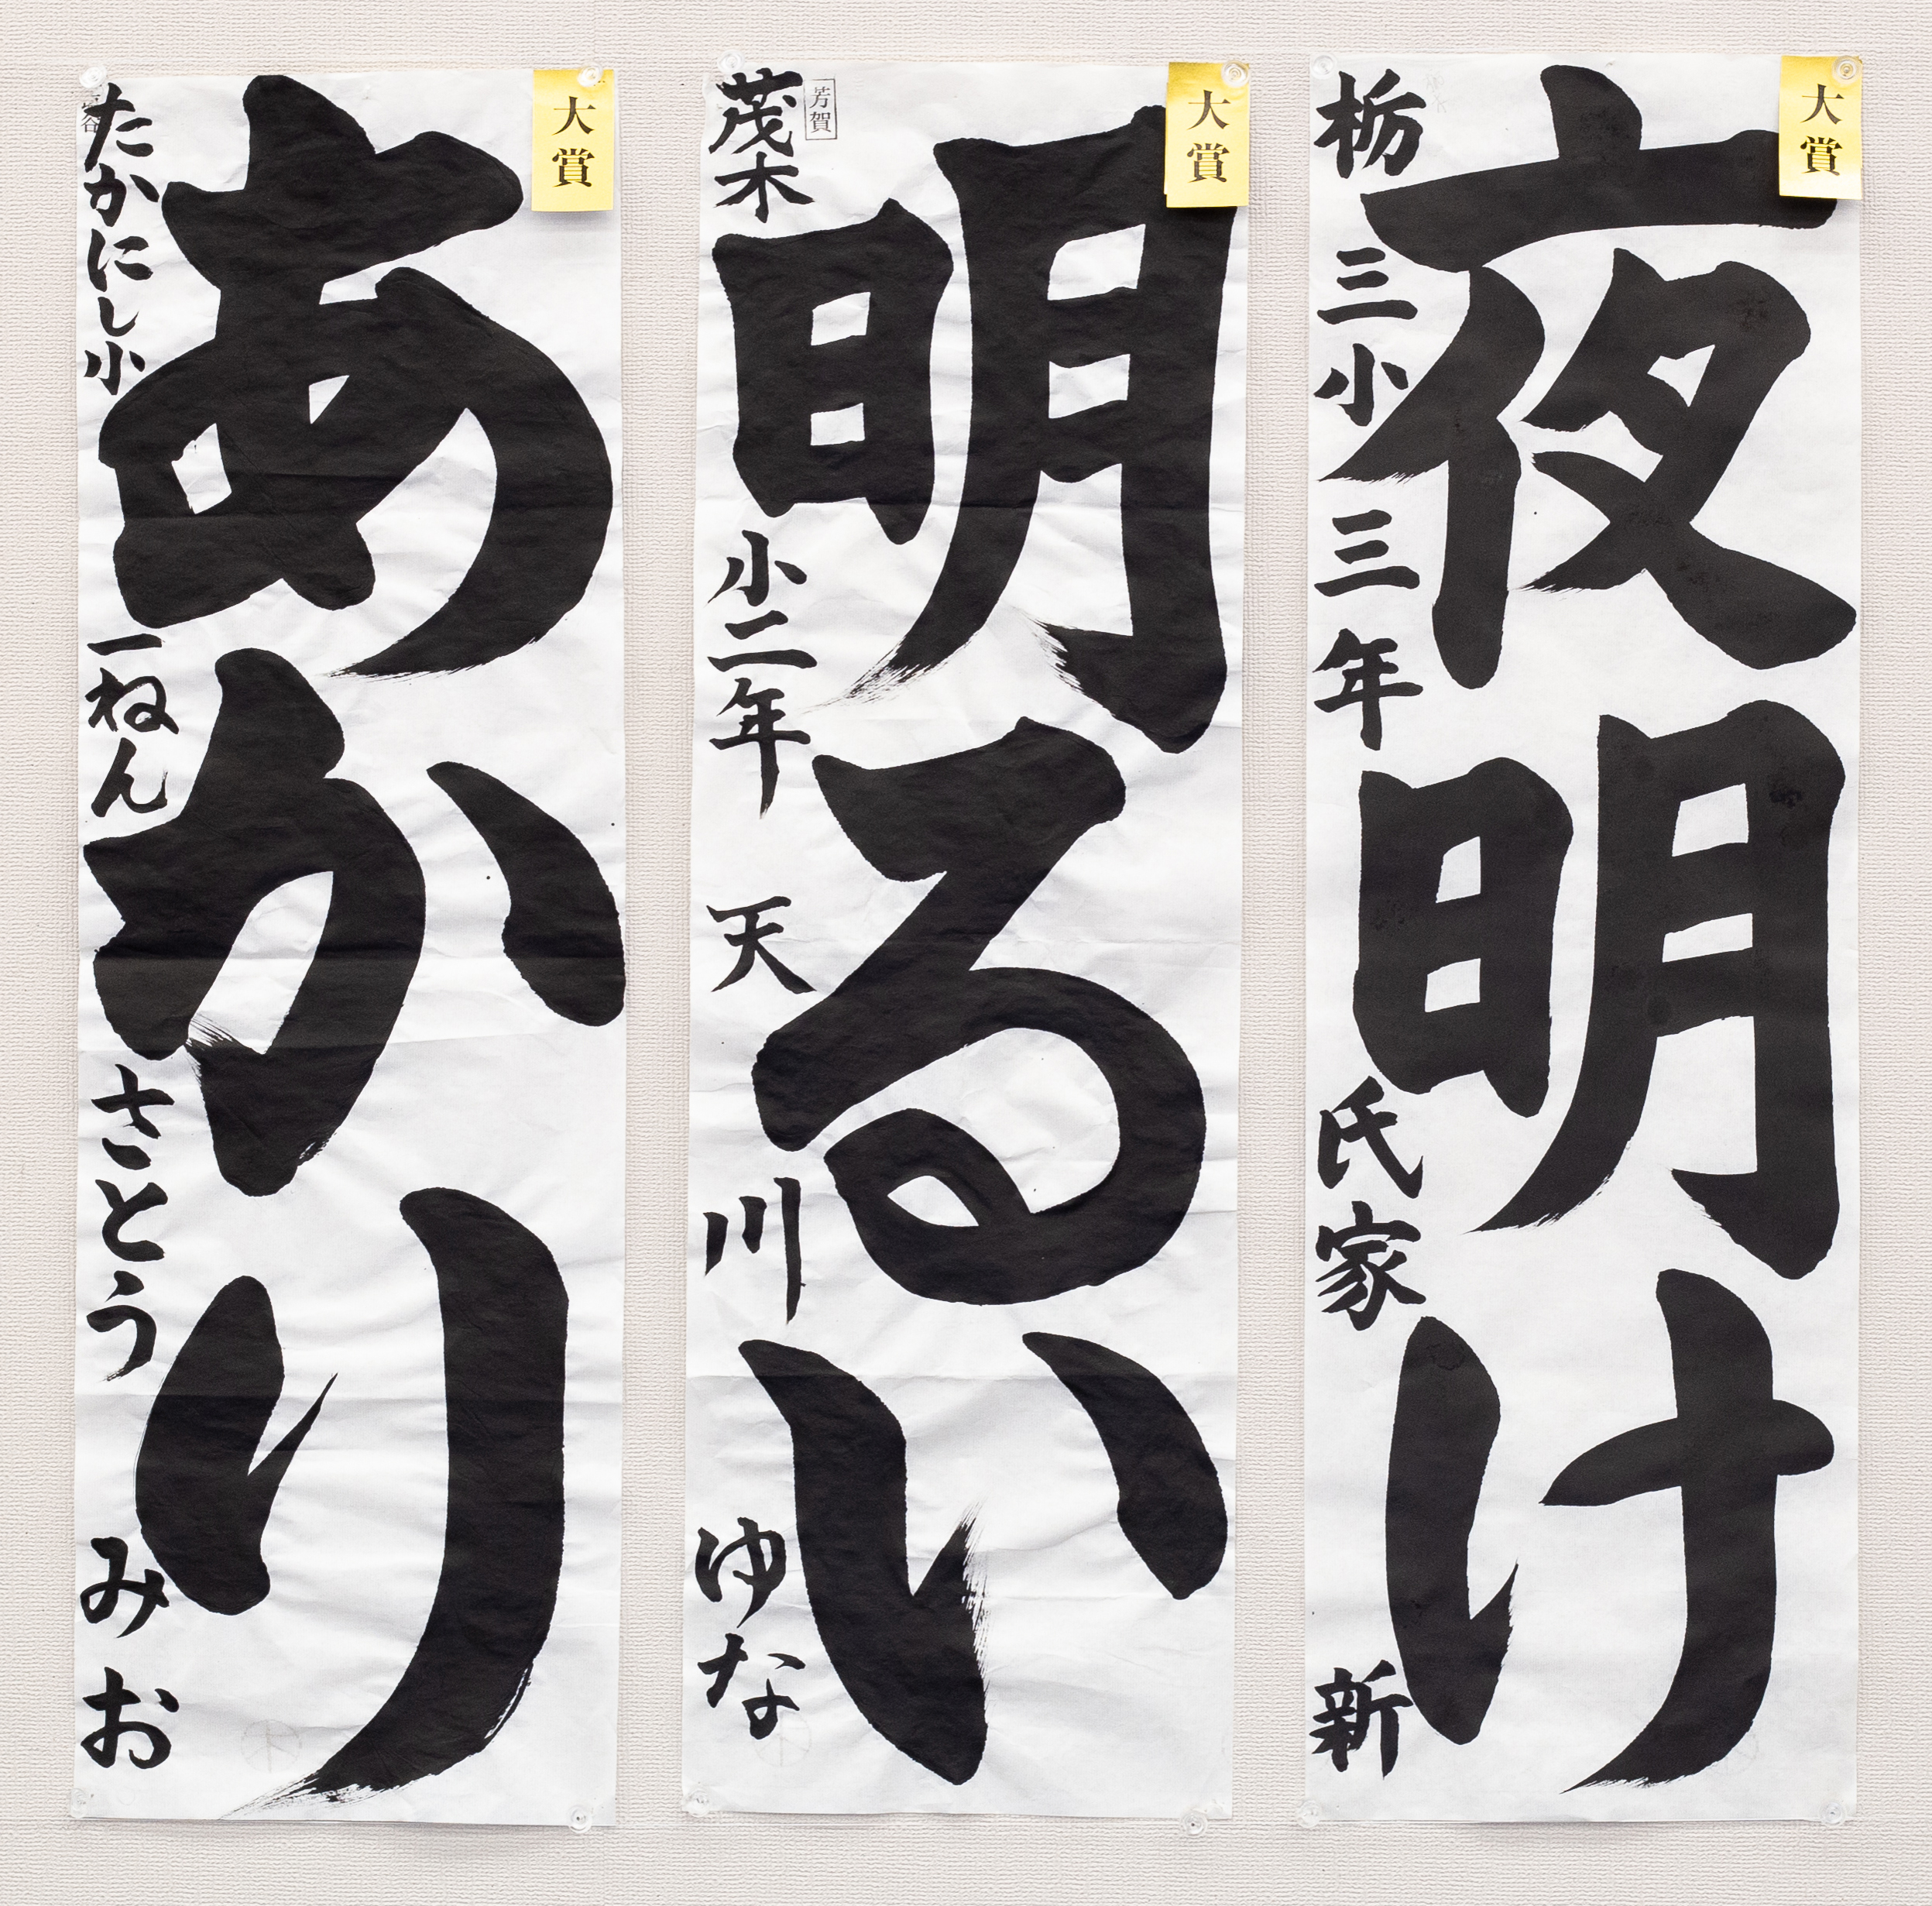 大賞
夜明け
栃三小三年 氏家 新
大賞
明るい
芳賀
茂木小二年 天川 ゆな
大賞
あかり
たかにし小一ねん さとう みお